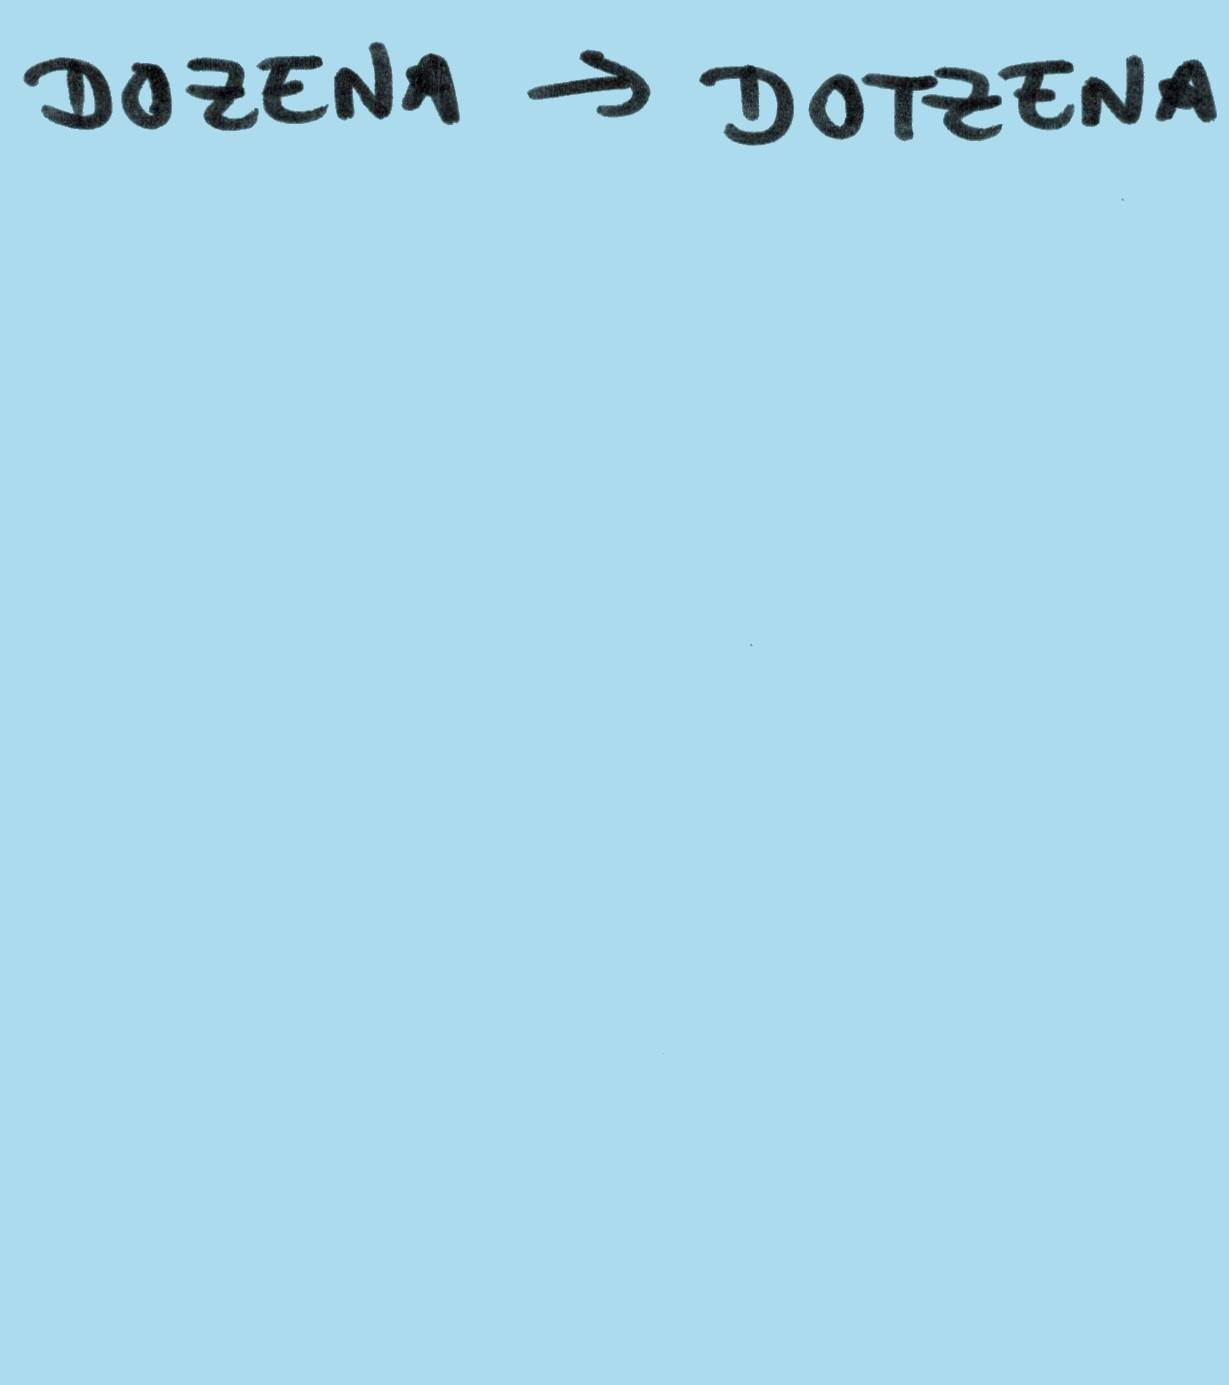 DOZENA → DOTZENA